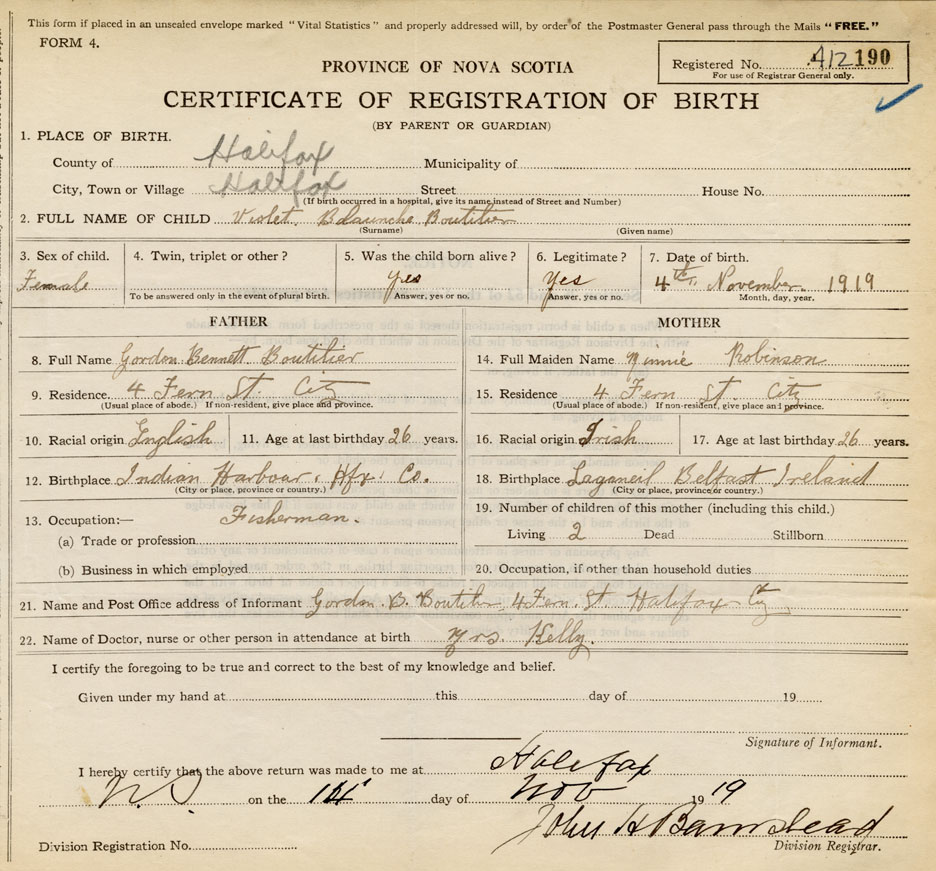 This form if placed in an unsealed envelope marked "Vital Statistics" and properly addressed will, by order of the Postmaster General pass through the Mails "FREE."
FORM 4.
Registered No. 412190
For use of Registrar General only.
PROVINCE OF NOVA SCOTIA
CERTIFICATE OF REGISTRATION OF BIRTH
(BY PARENT OR GUARDIAN)
1. PLACE OF BIRTH.
County of Halifax Municipality of
City, Town or Village Halifax Street House No.
(If birth occurred in a hospital, give its name instead of Street and Number)
2. FULL NAME OF CHILD Violet Blaunche Boutilier
(Surname) (Given name)
3. Sex of child. 4. Twin, triplet or other? 5. Was the child born alive? 6. Legitimate? 7. Date of birth.
Female Yes Yes 4th November 1919
To be answered only in the event of plural birth. Answer, yes or no. Answer, yes or no. Month, day, year.
FATHER MOTHER
8. Full Name Gordon Bennett Boutilier 14. Full Maiden Name Minnie Robinson
9. Residence. 4 Fern St. City 15. Residence 4 Fern St. City
(Usual place of abode.) If non-resident, give place and province. (Usual place of abode.) If non-resident, give place and province.
10. Racial origin English 11. Age at last birthday 26 years. 16. Racial origin Irish 17. Age at last birthday 26 years.
12. Birthplace Indian Harbour, Hfx. Co. 18. Birthplace Belfast Ireland
(City or place, province or country.) (City or place, province or country.)
13. Occupation:— Fisherman. 19. Number of children of this mother (including this child.)
(a) Trade or profession Living 2 Dead Stillborn
(b) Business in which employed 20. Occupation, if other than household duties
21. Name and Post Office address of Informant Gordon B. Boutilier 4 Fern. St. Halifax City
22. Name of Doctor, nurse or other person in attendance at birth Mrs. Kelly.
I certify the foregoing to be true and correct to the best of my knowledge and belief.
Given under my hand at this day of 19
Signature of Informant.
I hereby certify that the above return was made to me at Halifax
N.S on the day of Nov 19 19
John H Barnstead
Division Registration No. Division Registrar.